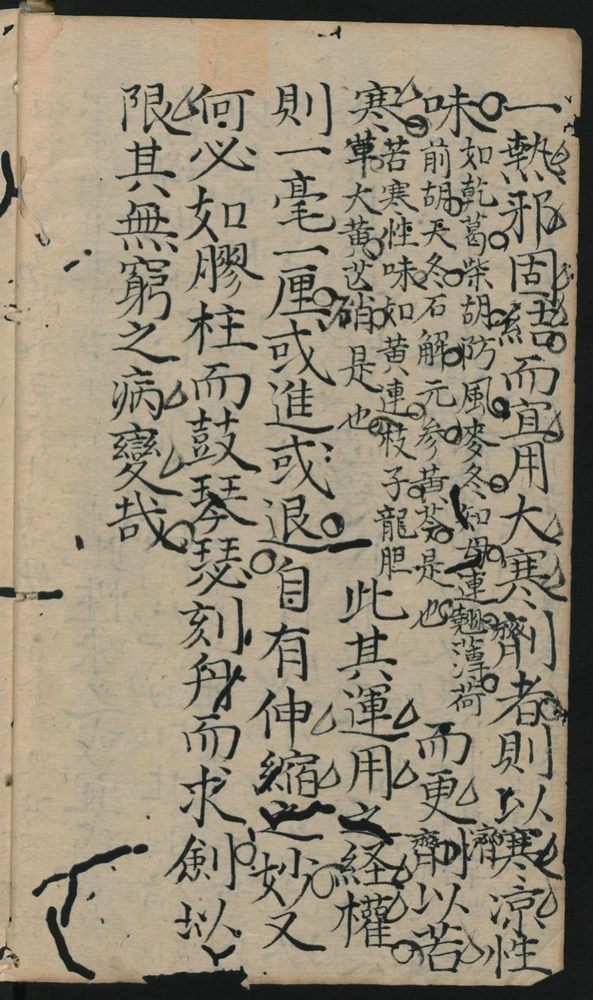 一熱邪固結而宜用大寒劑者則以寒涼性
味如乾葛柴胡防風麥冬知母連翹薄荷
前胡天冬石解元参黄芩是也而更劑以苦
寒苦寒性味如黄連枝子龍胆
草大黄芒硝是也此其運用之経權
則一毫一厘或進或退自有伸縮之妙又
何必如膠柱而鼓琴瑟刻舟而求劍以
限其無窮之病變哉